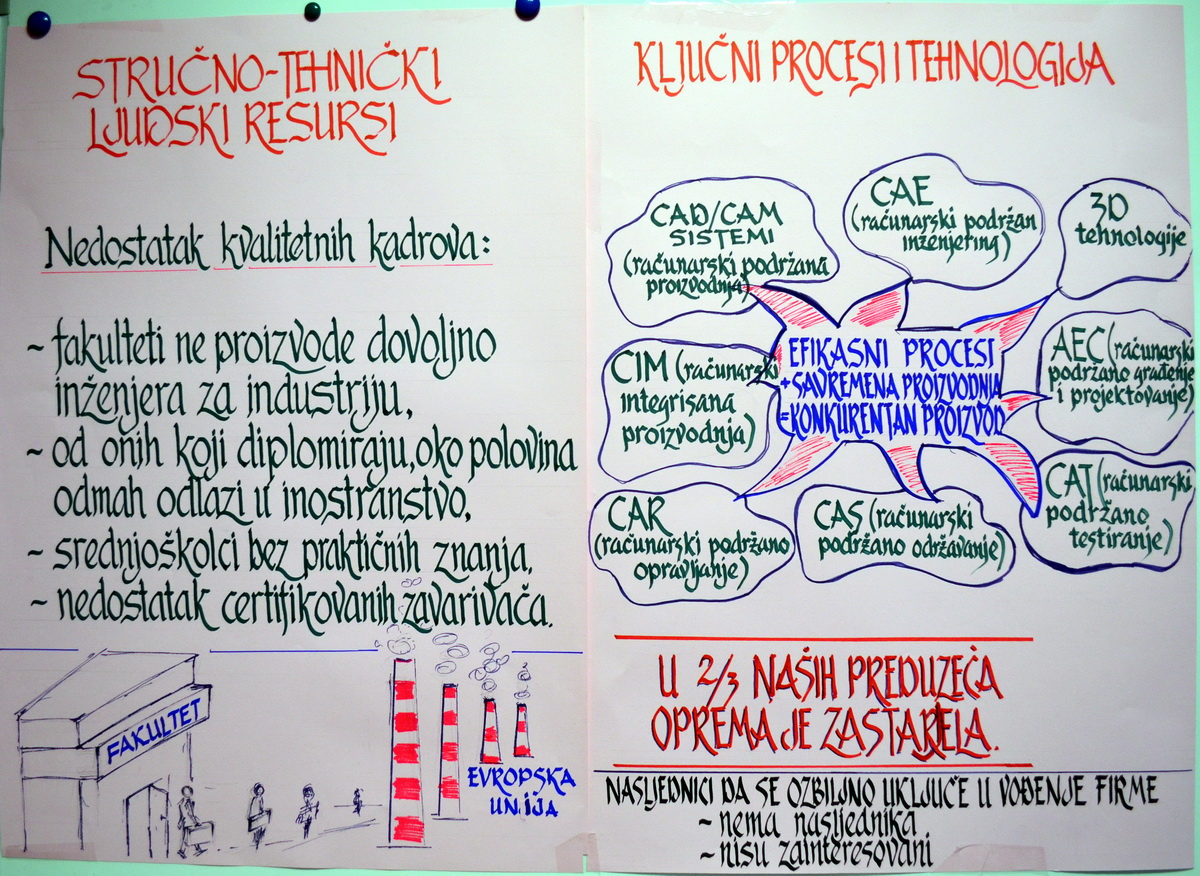 STRUČNO-TEHNIČKI
LJUDSKI RESURSI
Nedostatak kvalitetnih kadrova:
- fakulteti ne proizvode dovoljno
inženjera za industriju,
- od onih koji diplomiraju, oko polovina
odmah odlazi u inostranstvo,
- srednjoškolci bez praktičnih znanja,
- nedostatak certifikovanih zavarivača.
FAKULTET
EVROPSKA
UNIJA
KLJUČNI PROCESI I TEHNOLOGIJA
CAD/CAM
SISTEMI
(računarski podržana
proizvodnja)
CAE
(računarski podržan
inženjering)
3D
tehnologije
CIM (računarski
integrisana
proizvodnja)
EFIKASNI PROCESI
+ SAVREMENA PROIZVODNJA
= KONKURENTAN PROIZVOD
AEC (računarski
podržano građenje
i projektovanje)
CAR
(računarski podržano
opravljanje)
CAS (računarski
podržano održavanje)
CAT (računarski
podržano
testiranje)
U 2/3 NAŠIH PREDUZEĆA
OPREMA JE ZASTARJELA.
NASLJEDNICI DA SE OZBILJNO UKLJUČE U VOĐENJE FIRME
- nema nasljednika
- nisu zainteresovani